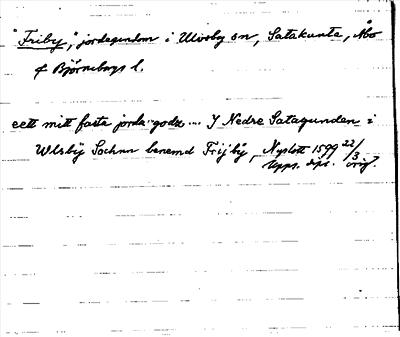 "Friby", jordegendom i Ulvsby sn, Satakunta, Åbo
& Björneborgs l.
eett mitt fasta jorda-godz... J Nedre Satagunden i
Wlsbÿ Sochnn benemd Frijbÿ, Nyslott 1599 22/3
Upps. dipl. orig.